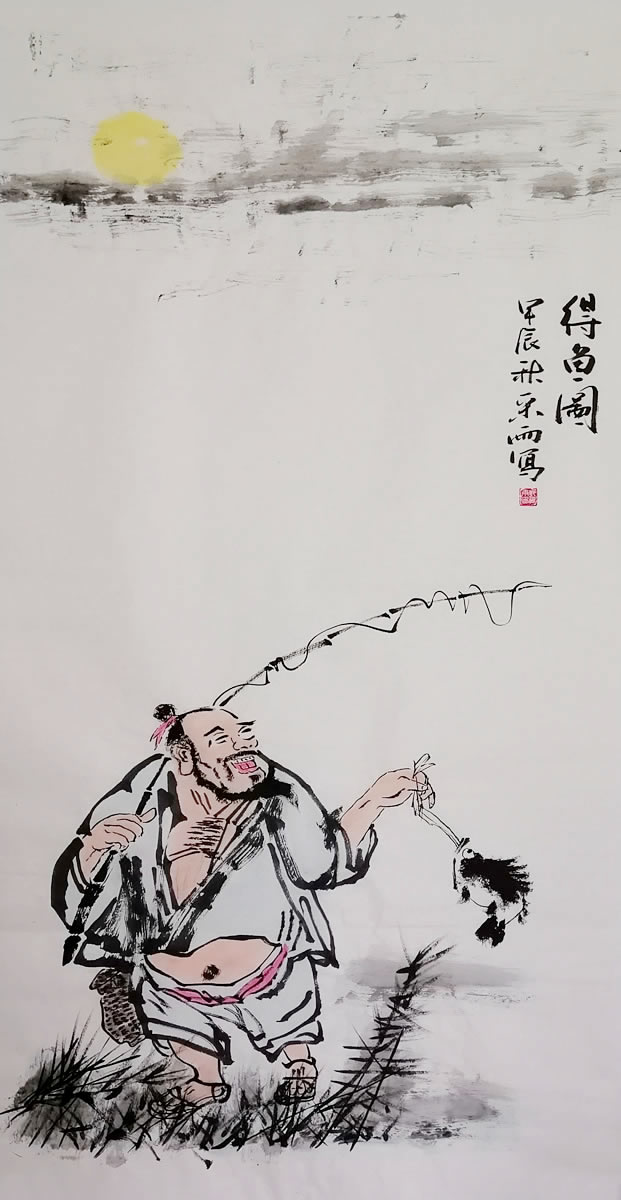 得鱼图
甲辰秋采雨写